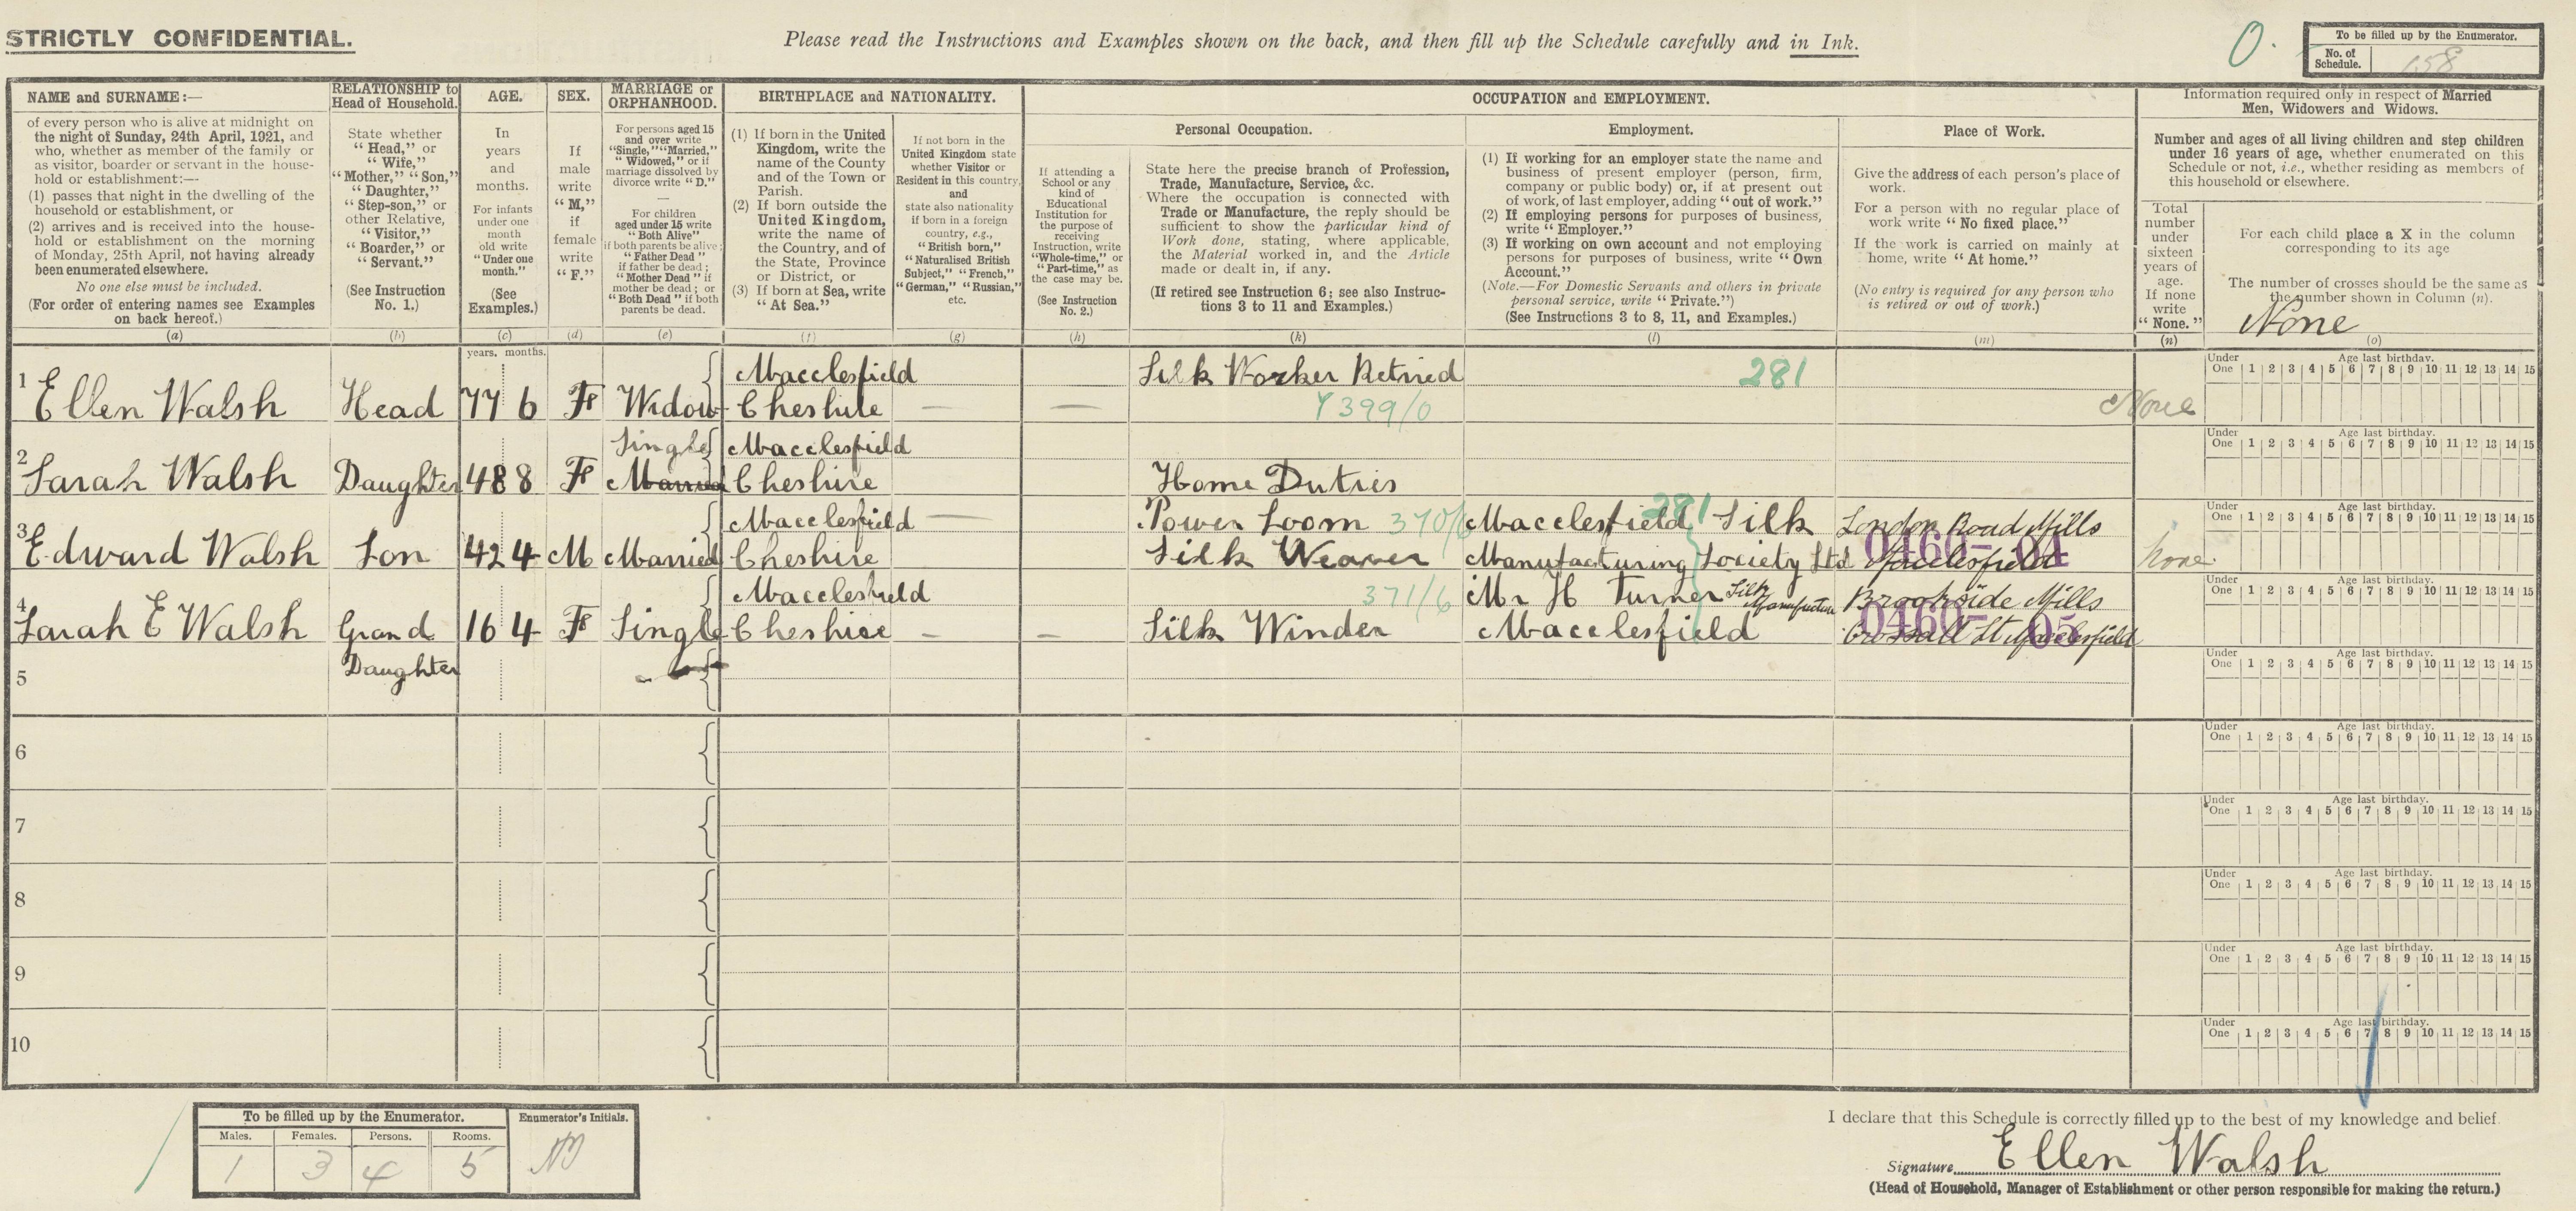 STRICTLY CONFIDENTIAL.
Please read the Instructions and Examples shown on the back, and then fill up the Schedule carefully and in Ink.
0.
To be filled up by the Enumerator.
No. of Schedule. 158
NAME and SURNAME:—
of every person who is alive at midnight on
the night of Sunday, 24th April, 1921, and
who, whether as member of the family or
as visitor, boarder or servant in the house-
hold or establishment:—
(1) passes that night in the dwelling of the
household or establishment, or
(2) arrives and is received into the house-
hold or establishment on the morning
of Monday, 25th April, not having already
been enumerated elsewhere.
No one else must be included.
(For order of entering names see Examples
on back hereof.)
(a)
RELATIONSHIP to
Head of Household.
State whether
"Head," or
"Wife,"
"Mother," "Son,"
"Daughter,"
"Step-son," or
other Relative,
"Visitor,"
"Boarder," or
"Servant."
(See Instruction
No. 1.)
(b)
AGE.
In
years
and
months.
For infants
under one
month
old write
"Under one
month."
(See
Examples.)
(c)
SEX.
If
male
write
"M,"
if
female
write
"F."
(d)
MARRIAGE or
ORPHANHOOD.
For persons aged 15
and over write
"Single," "Married,"
"Widowed," or if
marriage dissolved by
divorce write "D."
—
For children
aged under 15 write
"Both Alive"
if both parents be alive;
"Father Dead"
if father be dead;
"Mother Dead" if
mother be dead; or
"Both Dead" if both
parents be dead.
(e)
BIRTHPLACE and NATIONALITY.
(1) If born in the United
Kingdom, write the
name of the County
and of the Town or
Parish.
(2) If born outside the
United Kingdom,
write the name of
the Country, and of
the State, Province
or District, or
(3) If born at Sea, write
"At Sea."
(f)
If not born in the
United Kingdom state
whether Visitor or
Resident in this country,
and
state also nationality
if born in a foreign
country, e.g.,
"British born,"
"Naturalised British
Subject," "French,"
"German," "Russian,"
etc.
(g)
OCCUPATION and EMPLOYMENT.
If attending a
School or any
kind of
Educational
Institution for
the purpose of
receiving
Instruction, write
"Whole-time," or
"Part-time," as
the case may be.
(See Instruction
No. 2.)
(h)
Personal Occupation.
State here the precise branch of Profession,
Trade, Manufacture, Service, &c.
Where the occupation is connected with
Trade or Manufacture, the reply should be
sufficient to show the particular kind of
Work done, stating, where applicable,
the Material worked in, and the Article
made or dealt in, if any.
(If retired see Instruction 6; see also Instruc-
tions 3 to 11 and Examples.)
(k)
Employment.
(1) If working for an employer state the name and
business of present employer (person, firm,
company or public body) or, if at present out
of work, of last employer, adding "out of work."
(2) If employing persons for purposes of business,
write "Employer."
(3) If working on own account and not employing
persons for purposes of business, write "Own
Account."
(Note.—For Domestic Servants and others in private
personal service, write "Private.")
(See Instructions 3 to 8, 11, and Examples.)
(l)
Place of Work.
Give the address of each person's place of
work.
For a person with no regular place of
work write "No fixed place."
If the work is carried on mainly at
home, write "At home."
(No entry is required for any person who
is retired or out of work.)
(m)
Information required only in respect of Married
Men, Widowers and Widows.
Number and ages of all living children and step children
under 16 years of age, whether enumerated on this
Schedule or not, i.e., whether residing as members of
this household or elsewhere.
Total
number
under
sixteen
years of
age.
If none
write
"None."
(n)
For each child place a X in the column
corresponding to its age
The number of crosses should be the same as
the number shown in Column (n).
None
(o)
years. months.
1 Ellen Walsh Head 77 6 F Widow Macclesfield Cheshire — — Silk Worker Retired Y399/0 281 None
Under One 1 2 3 4 5 6 7 8 9 10 11 12 13 14 15 Age last birthday.
2 Sarah Walsh Daughter 48 8 F Single Married Macclesfield Cheshire Home Duties
Under One 1 2 3 4 5 6 7 8 9 10 11 12 13 14 15 Age last birthday.
3 Edward Walsh Son 42 4 M Married Macclesfield — Cheshire Power Loom 370/6 Silk Weaver 281 Macclesfield Silk Manufacturing Society Ltd London Road Mills Macclesfield 0460- 04 none
Under One 1 2 3 4 5 6 7 8 9 10 11 12 13 14 15 Age last birthday.
4 Sarah E Walsh Grand Daughter 16 4 F Single Macclesfield Cheshire — — 371/6 Silk Winder Mr H Turner Silk Manufacturer Macclesfield Brookside Mills Crossall St Macclesfield 0460- 05
Under One 1 2 3 4 5 6 7 8 9 10 11 12 13 14 15 Age last birthday.
5
Under One 1 2 3 4 5 6 7 8 9 10 11 12 13 14 15 Age last birthday.
6
Under One 1 2 3 4 5 6 7 8 9 10 11 12 13 14 15 Age last birthday.
7
Under One 1 2 3 4 5 6 7 8 9 10 11 12 13 14 15 Age last birthday.
8
Under One 1 2 3 4 5 6 7 8 9 10 11 12 13 14 15 Age last birthday.
9
Under One 1 2 3 4 5 6 7 8 9 10 11 12 13 14 15 Age last birthday.
10
Under One 1 2 3 4 5 6 7 8 9 10 11 12 13 14 15 Age last birthday.
To be filled up by the Enumerator.
Males. Females. Persons. Rooms.
1 3 4 5
Enumerator's Initials.
I declare that this Schedule is correctly filled up to the best of my knowledge and belief.
Signature Ellen Walsh
(Head of Household, Manager of Establishment or other person responsible for making the return.)